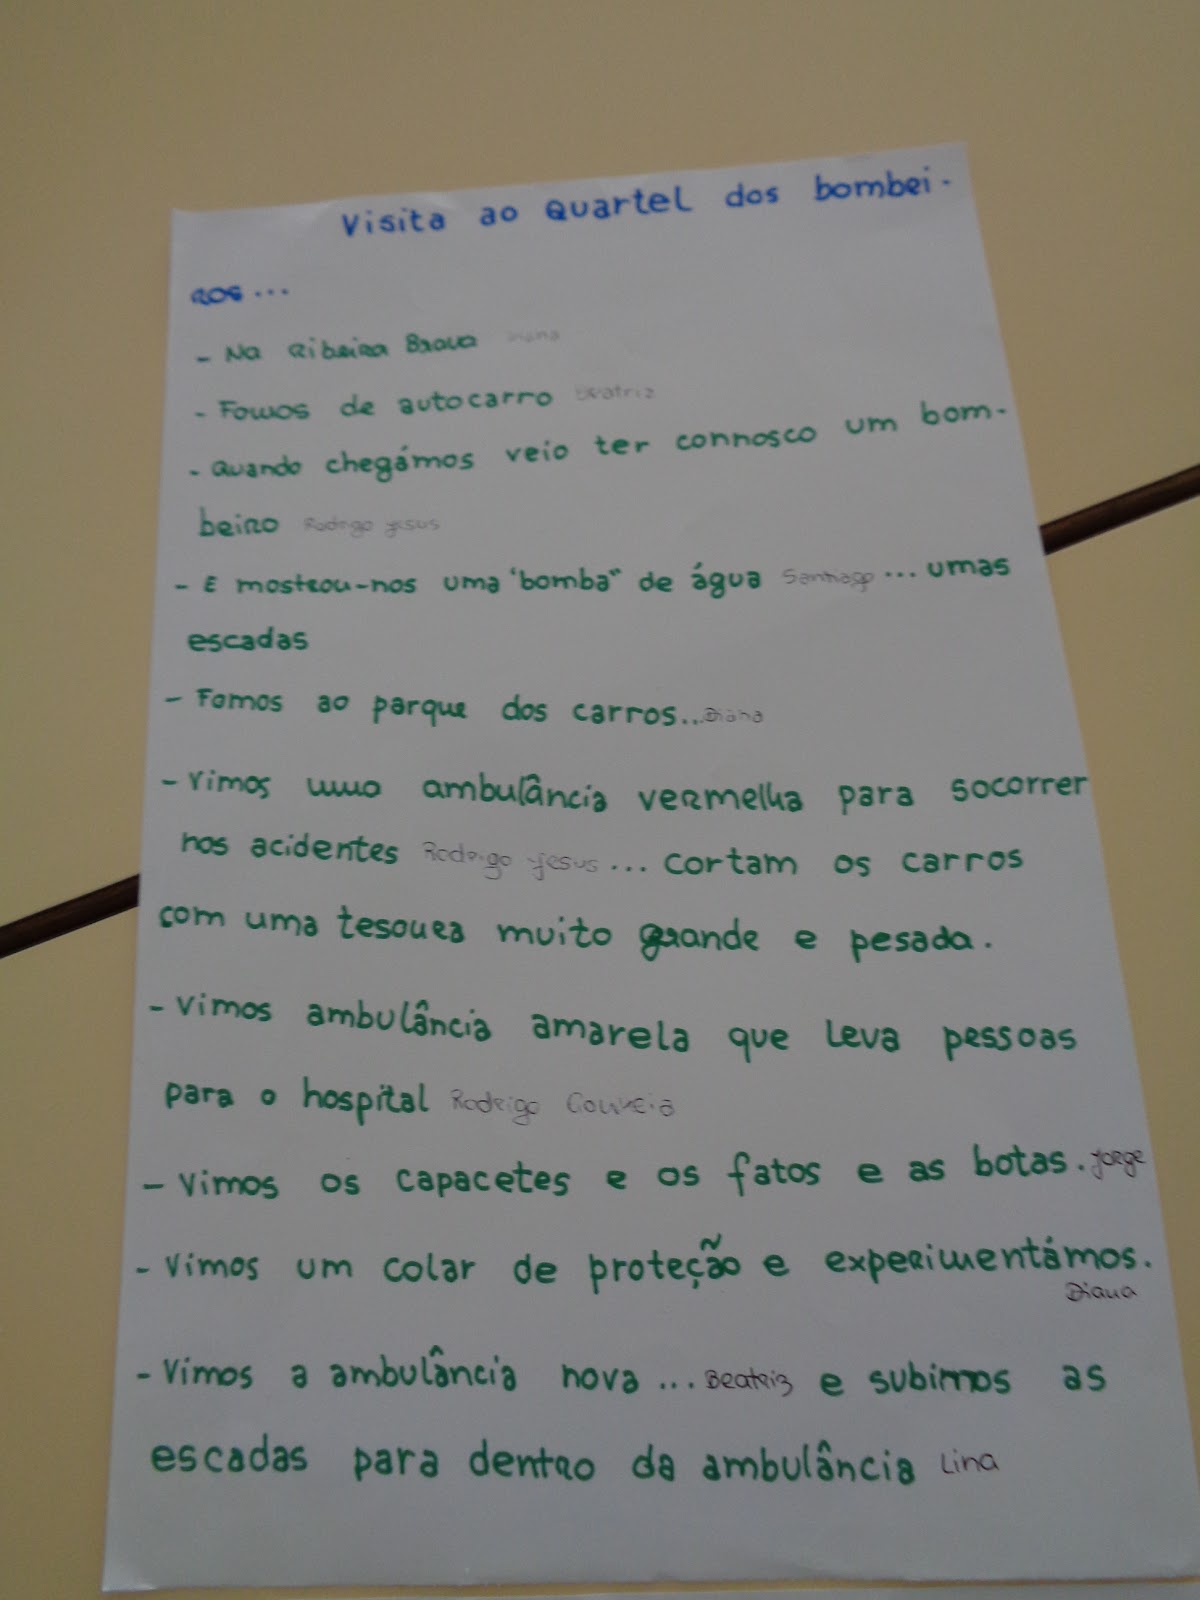 Visita ao Quartel dos bombei-
ros...
- Na Ribeira Brava Diana
- Fomos de autocarro Beatriz
- Quando chegámos veio ter connosco um bom-
beiro Rodrigo Jesus
- E mostrou-nos uma "bomba" de água Santiago ... umas
escadas
- Fomos ao parque dos carros... Diana
- Vimos uma ambulância vermelha para socorrer
nos acidentes Rodrigo Jesus ... cortam os carros
com uma tesoura muito grande e pesada.
- Vimos ambulância amarela que leva pessoas
para o hospital Rodrigo Gouveia
- Vimos os capacetes e os fatos e as botas. Jorge
- Vimos um colar de proteção e experimentámos.
Diana
- Vimos a ambulância nova ... Beatriz e subimos as
escadas para dentro da ambulância Lina